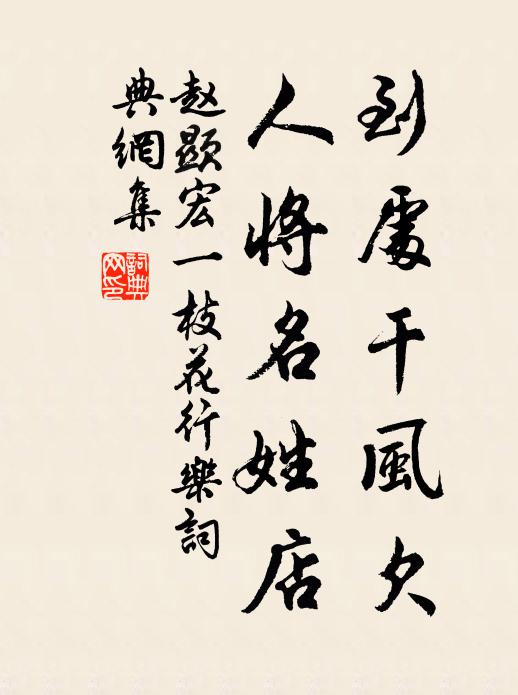 到處干風欠
人將名姓店
赵顯宏一枝花行樂詞
典網集
詞典网印